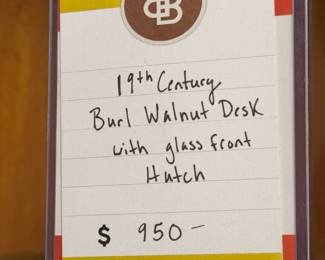 19th Century
Burl Walnut Desk
with glass front
Hutch
$ 950-